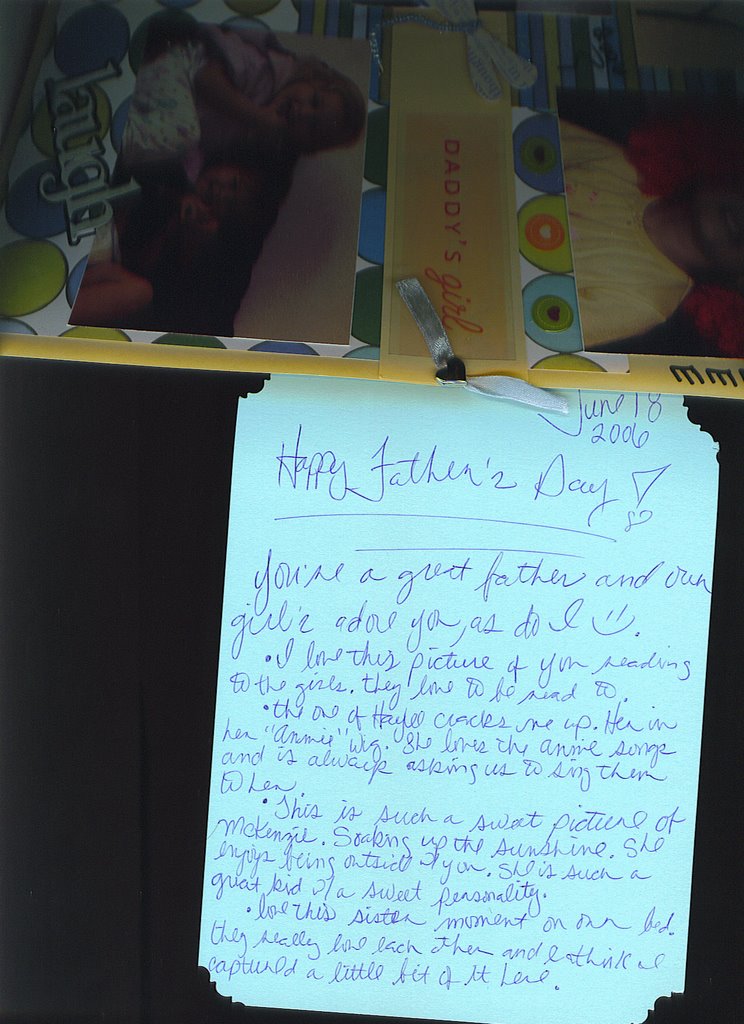 laugh
DADDY'S girl
June 18
2006
Happy Father's Day!
You're a great father and our
girl's adore you, as do I
• I love this picture of you reading
to the girls. They love to be read to.
• the one of Haylee cracks me up. Her in
her "Annie" wig. She loves the annie songs
and is always asking us to sing them
to her.
• This is such a sweet picture of
McKenzie. Soaking up the sunshine. She
enjoys being outside w/ you. She is such a
great kid w/ a sweet personality.
• love this sister moment on our bed.
they really love each other and I think I
captured a little bit of it here.